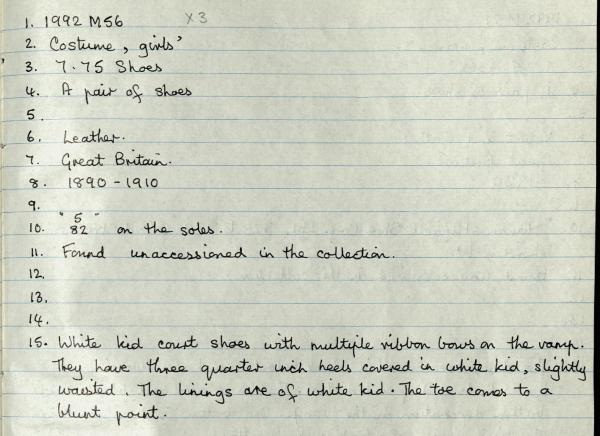 1. 1992 M56 X 3
2. Costume, girls'
3. 7.75 Shoes
4. A pair of shoes
5.
6. Leather.
7. Great Britain.
8. 1890 - 1910
9.
10. "5/82" on the soles.
11. Found unaccessioned in the collection.
12.
13.
14.
15. White kid court shoes with multiple ribbon bows on the vamp.
They have three quarter inch heels covered in white kid, slightly
waisted. The linings are of white kid. The toe comes to a
blunt point.